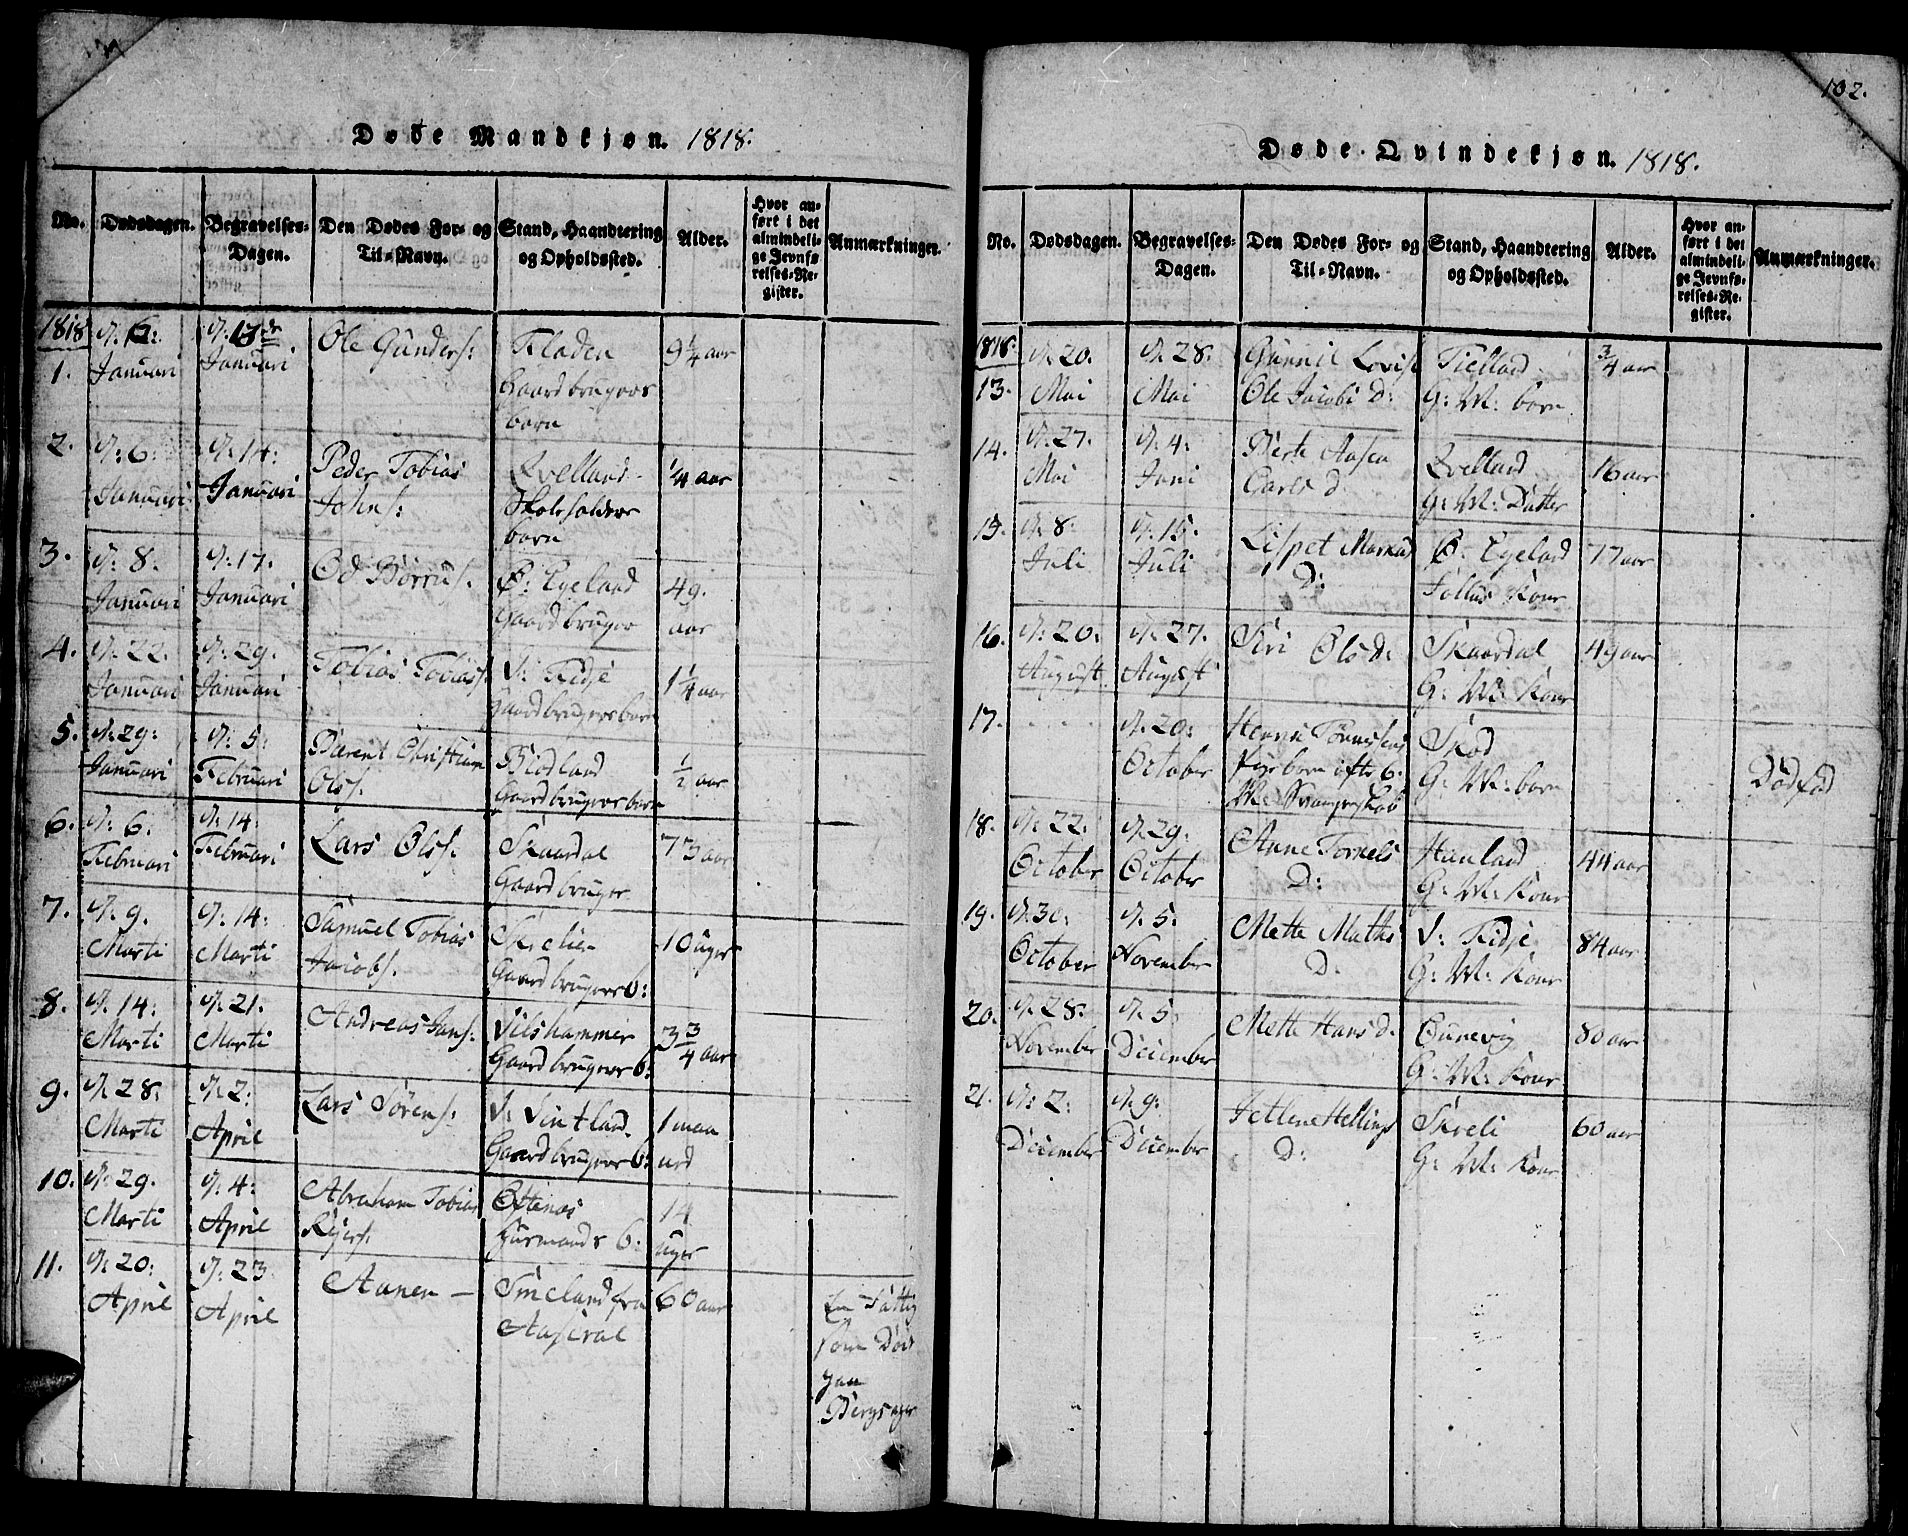 Døde Mandkjøn. 1818.
No. Dødsdagen. Begravelses-Dagen. Den Dødes For- og Til-Navn. Stand, Haandtering og Opholdssted. Alder. Hvor anført i det almindelige Jevnførelses-Register. Anmærkninger.
1818
1. d: 6: Januari d: 17de Januari Ole Gunders: Fladen Gaardbrugers barn 9 1/4 aar
2. d: 6: Januari d: 14: Januari Peder Tobias Johns: Qvelland Skoleholders barn 1/4 aar
3. d: 8. Januari d: 17. Januari Od Børrus. Ø: Egeland Gaardbruger 49. aar
4. d: 22. Januari d: 29. Januari Tobias Tobias: V: Fidje Gaardbrugers barn 1 1/4 aar
5. d: 29: Januari d: 5: Februari Barent Christian Ols: Birkland Gaardbrugers barn 1/2 aar
6. d: 6: Februari d: 14: Februari Lars Ols: Skaardal Gaardbruger 73 aar
7. d: 9. Marti d: 14: Marti Samuel Tobias Jacobs: Gaardbrugers b: 10 uger
8. d: 14: Marti d: 21. Marti Andreas Jans: Gaardbrugers b: 3 3/4 aar
9. d: 28: Marti d: 2: April Lars Sørens: V: Sintland. Gaardbrugers b: 1 maaned
10. d: 29. Marti d: 4: April Abraham Tobias Eftenes Huusmands b: 14 uger
11. d: 20: April d: 23. April Aanen — Smeland fra Aaseral 60 aar En Fattig som Døde paa Bergsager
102.
Døde Qvindekjøn. 1818.
No. Dødsdagen. Begravelses-Dagen. Den Dødes For- og Til-Navn. Stand, Haandtering og Opholdssted. Alder. Hvor anført i det almindelige Jevnførelses-Register. Anmærkninger.
1818.
13. d: 20. Mai d: 28. Mai Gunnil Lovise Ole Jacobs D: G: M: barn 3/4 aar
14. d: 27. Mai d: 4: Juni Berte Aasen Carls d. Qvelland G: M: Datter 16 aar
15. d: 8: Juli d: 15: Juli Lispet Markus D: Ø: Egeland Føllus Kone 77 aar
16. d: 20: August d: 27. August Siri Ols D: Skaardal G: M: Kone 49 aar
17. .... d: 20: October Henric Tønnesens Pigebarn efter 6: M: Svangerskab Skod G: M: barn Dødfød
18. d: 22. October d: 29: October Anne Tornels D: Haaland G: M: Kone 44 aar
19. d: 30. October d: 5: November Mette Mathis D. V: Fidje G: M: Kone 84 aar
20. d: 28: November d: 5. December Mette Hans d. Øunevig G: M: Kone 80 aar
21. d: 2: December d: 9: December D: Skreli G: M: Kone 60 aar